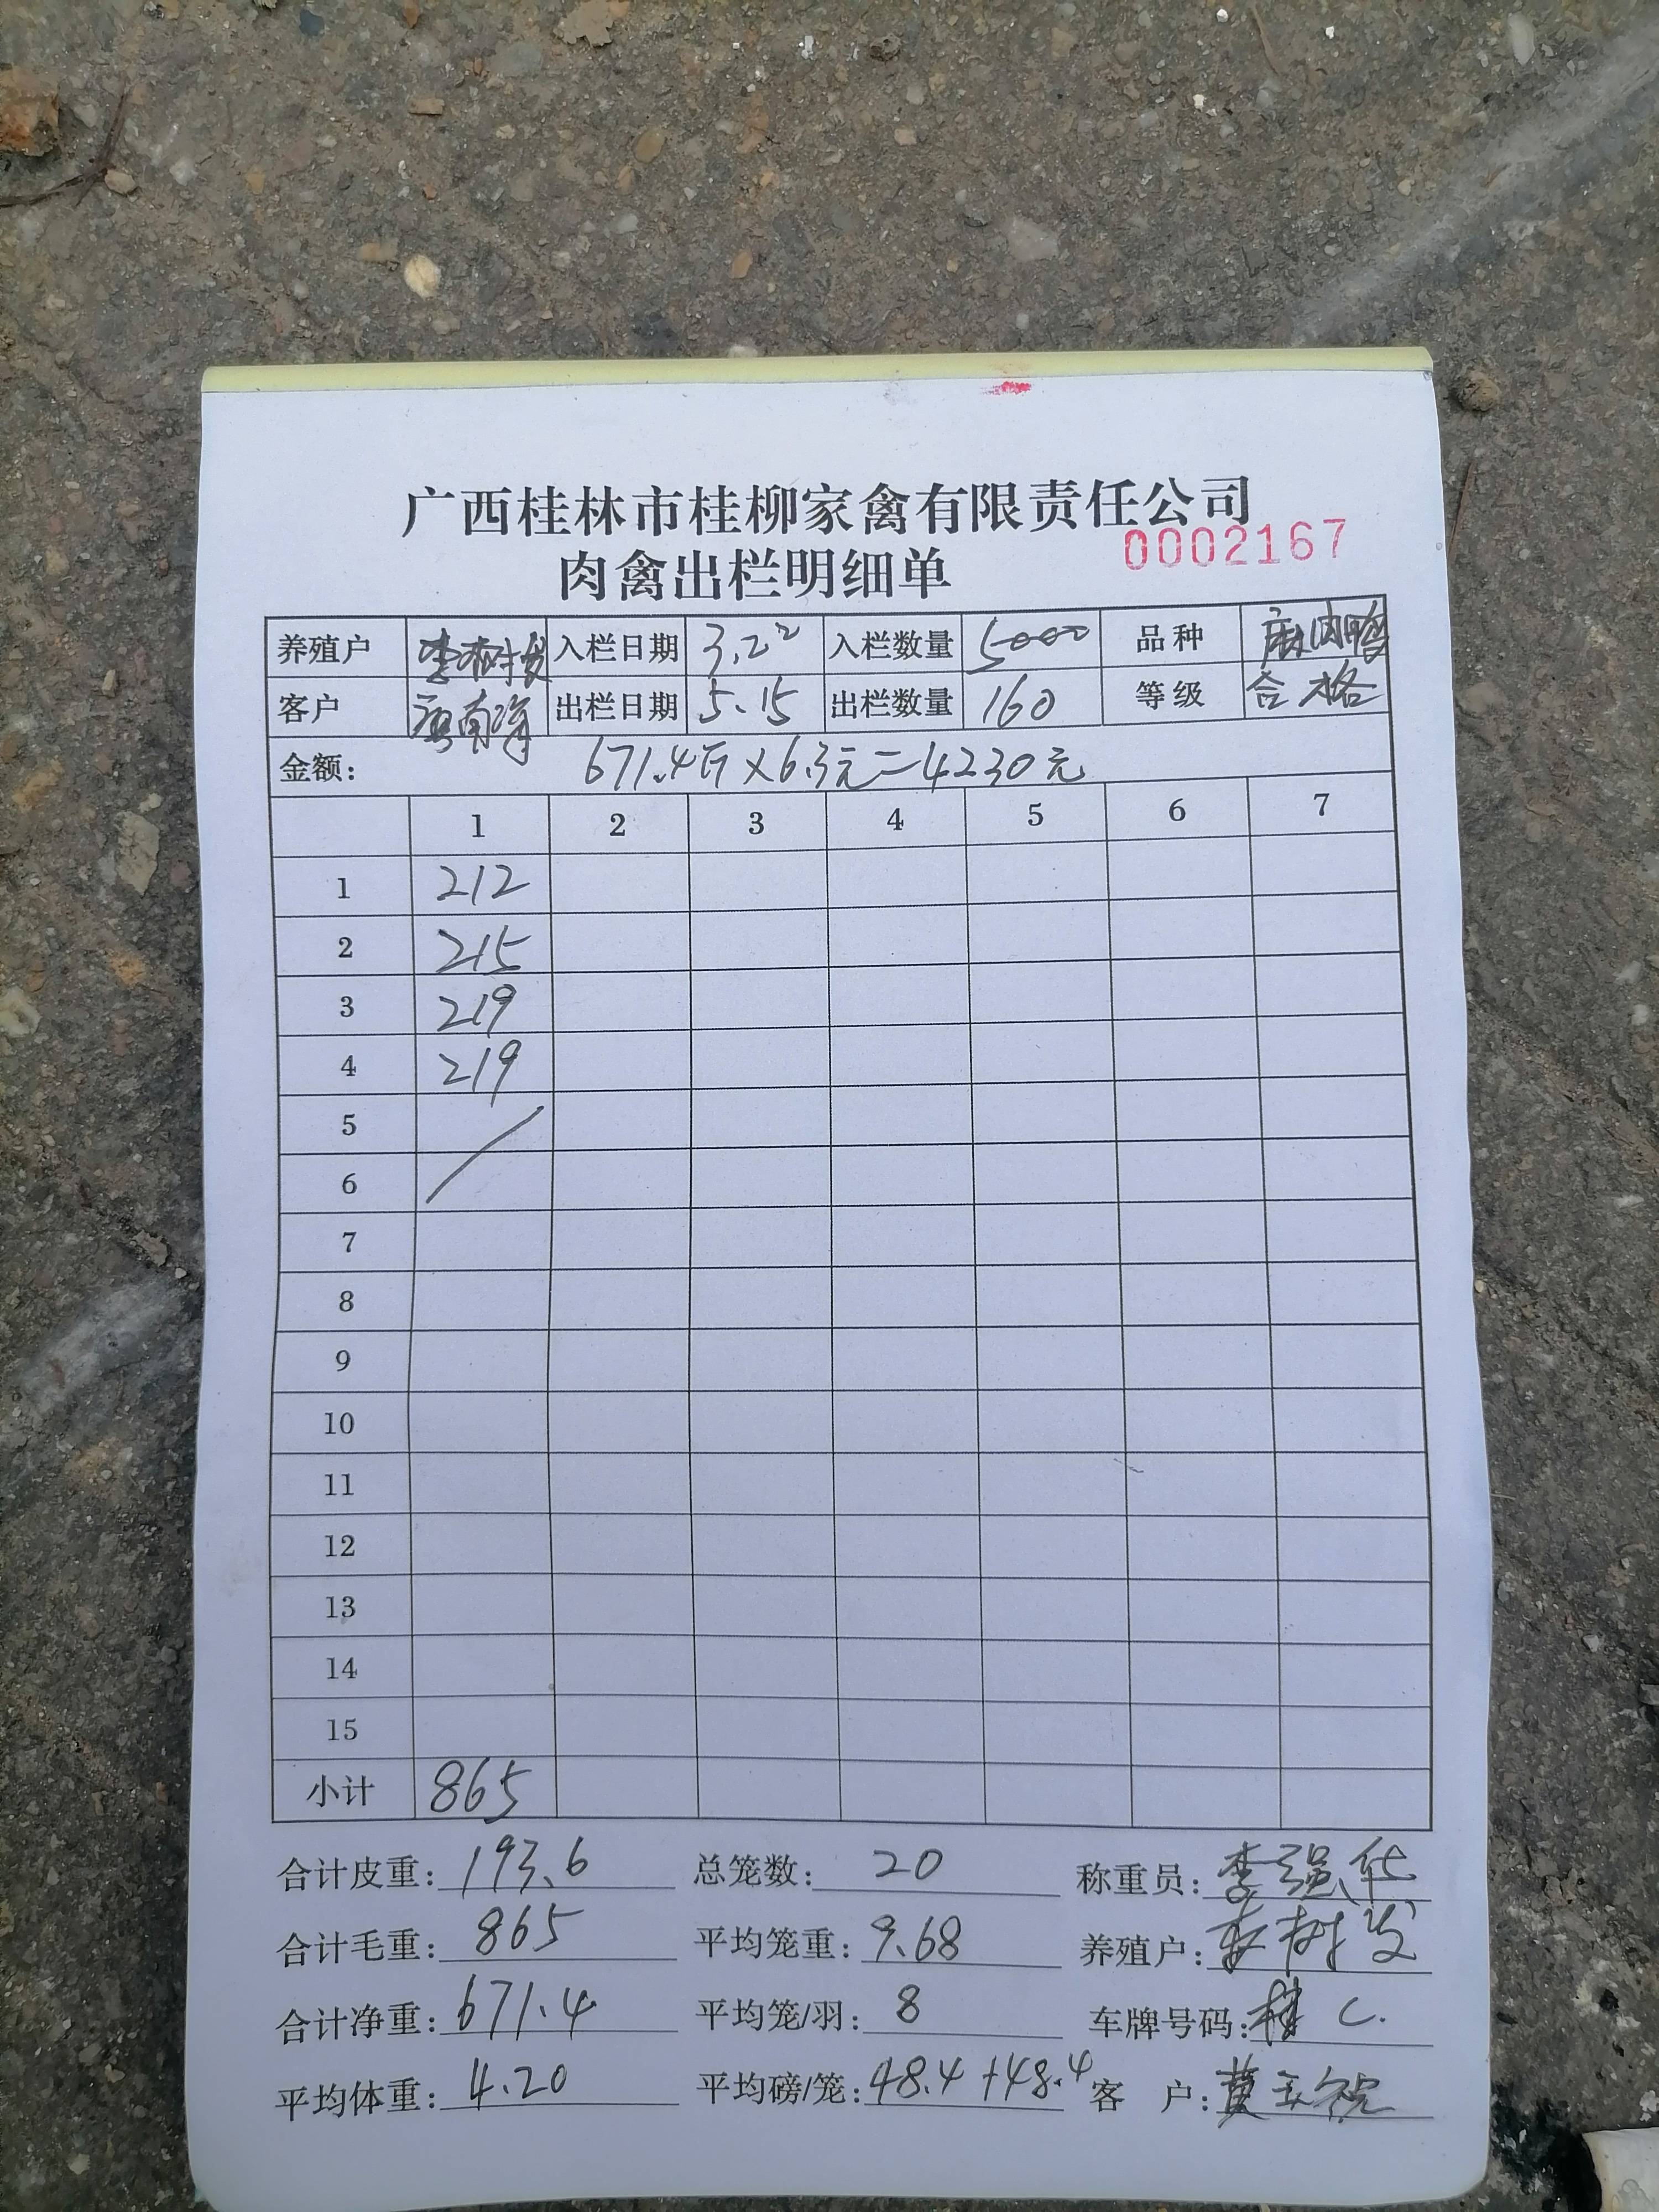 广西桂林市桂柳家禽有限责任公司
肉禽出栏明细单 0002167
养殖户 李树发 入栏日期 3.22 入栏数量 5000 品种 麻肉鸭
客户 南 出栏日期 5.15 出栏数量 160 等级 合格
金额: 671.4斤×6.3元=4230元
1 2 3 4 5 6 7
1 212
2 215
3 219
4 219
5
6
7
8
9
10
11
12
13
14
15
小计 865
合计皮重: 193.6 总笼数: 20 称重员: 李强华
合计毛重: 865 平均笼重: 9.68 养殖户: 李树发
合计净重: 671.4 平均笼/羽: 8 车牌号码: 桂C.
平均体重: 4.20 平均磅/笼: 48.4+48.4 客户: 黄